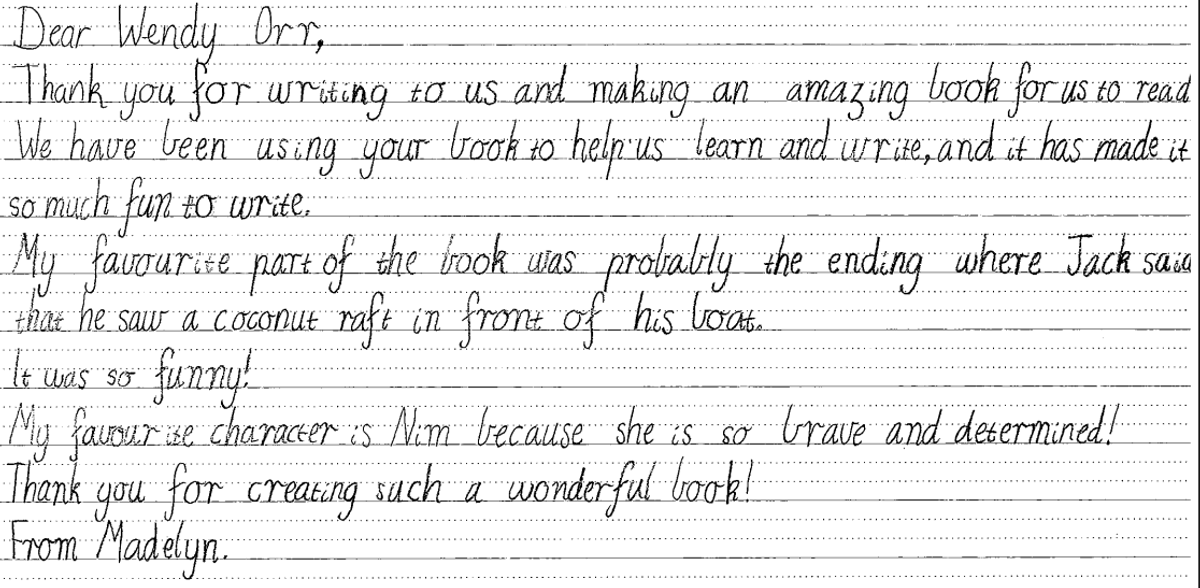 Dear Wendy Orr,
Thank you for writing to us and making an amazing book for us to read
We have been using your book to help us learn and write, and it has made it
so much fun to write.
My favourite part of the book was probably the ending where Jack said
that he saw a coconut raft in front of his boat.
It was so funny!
My favourite character is Nim because she is so brave and determined!
Thank you for creating such a wonderful book!
From Madelyn.